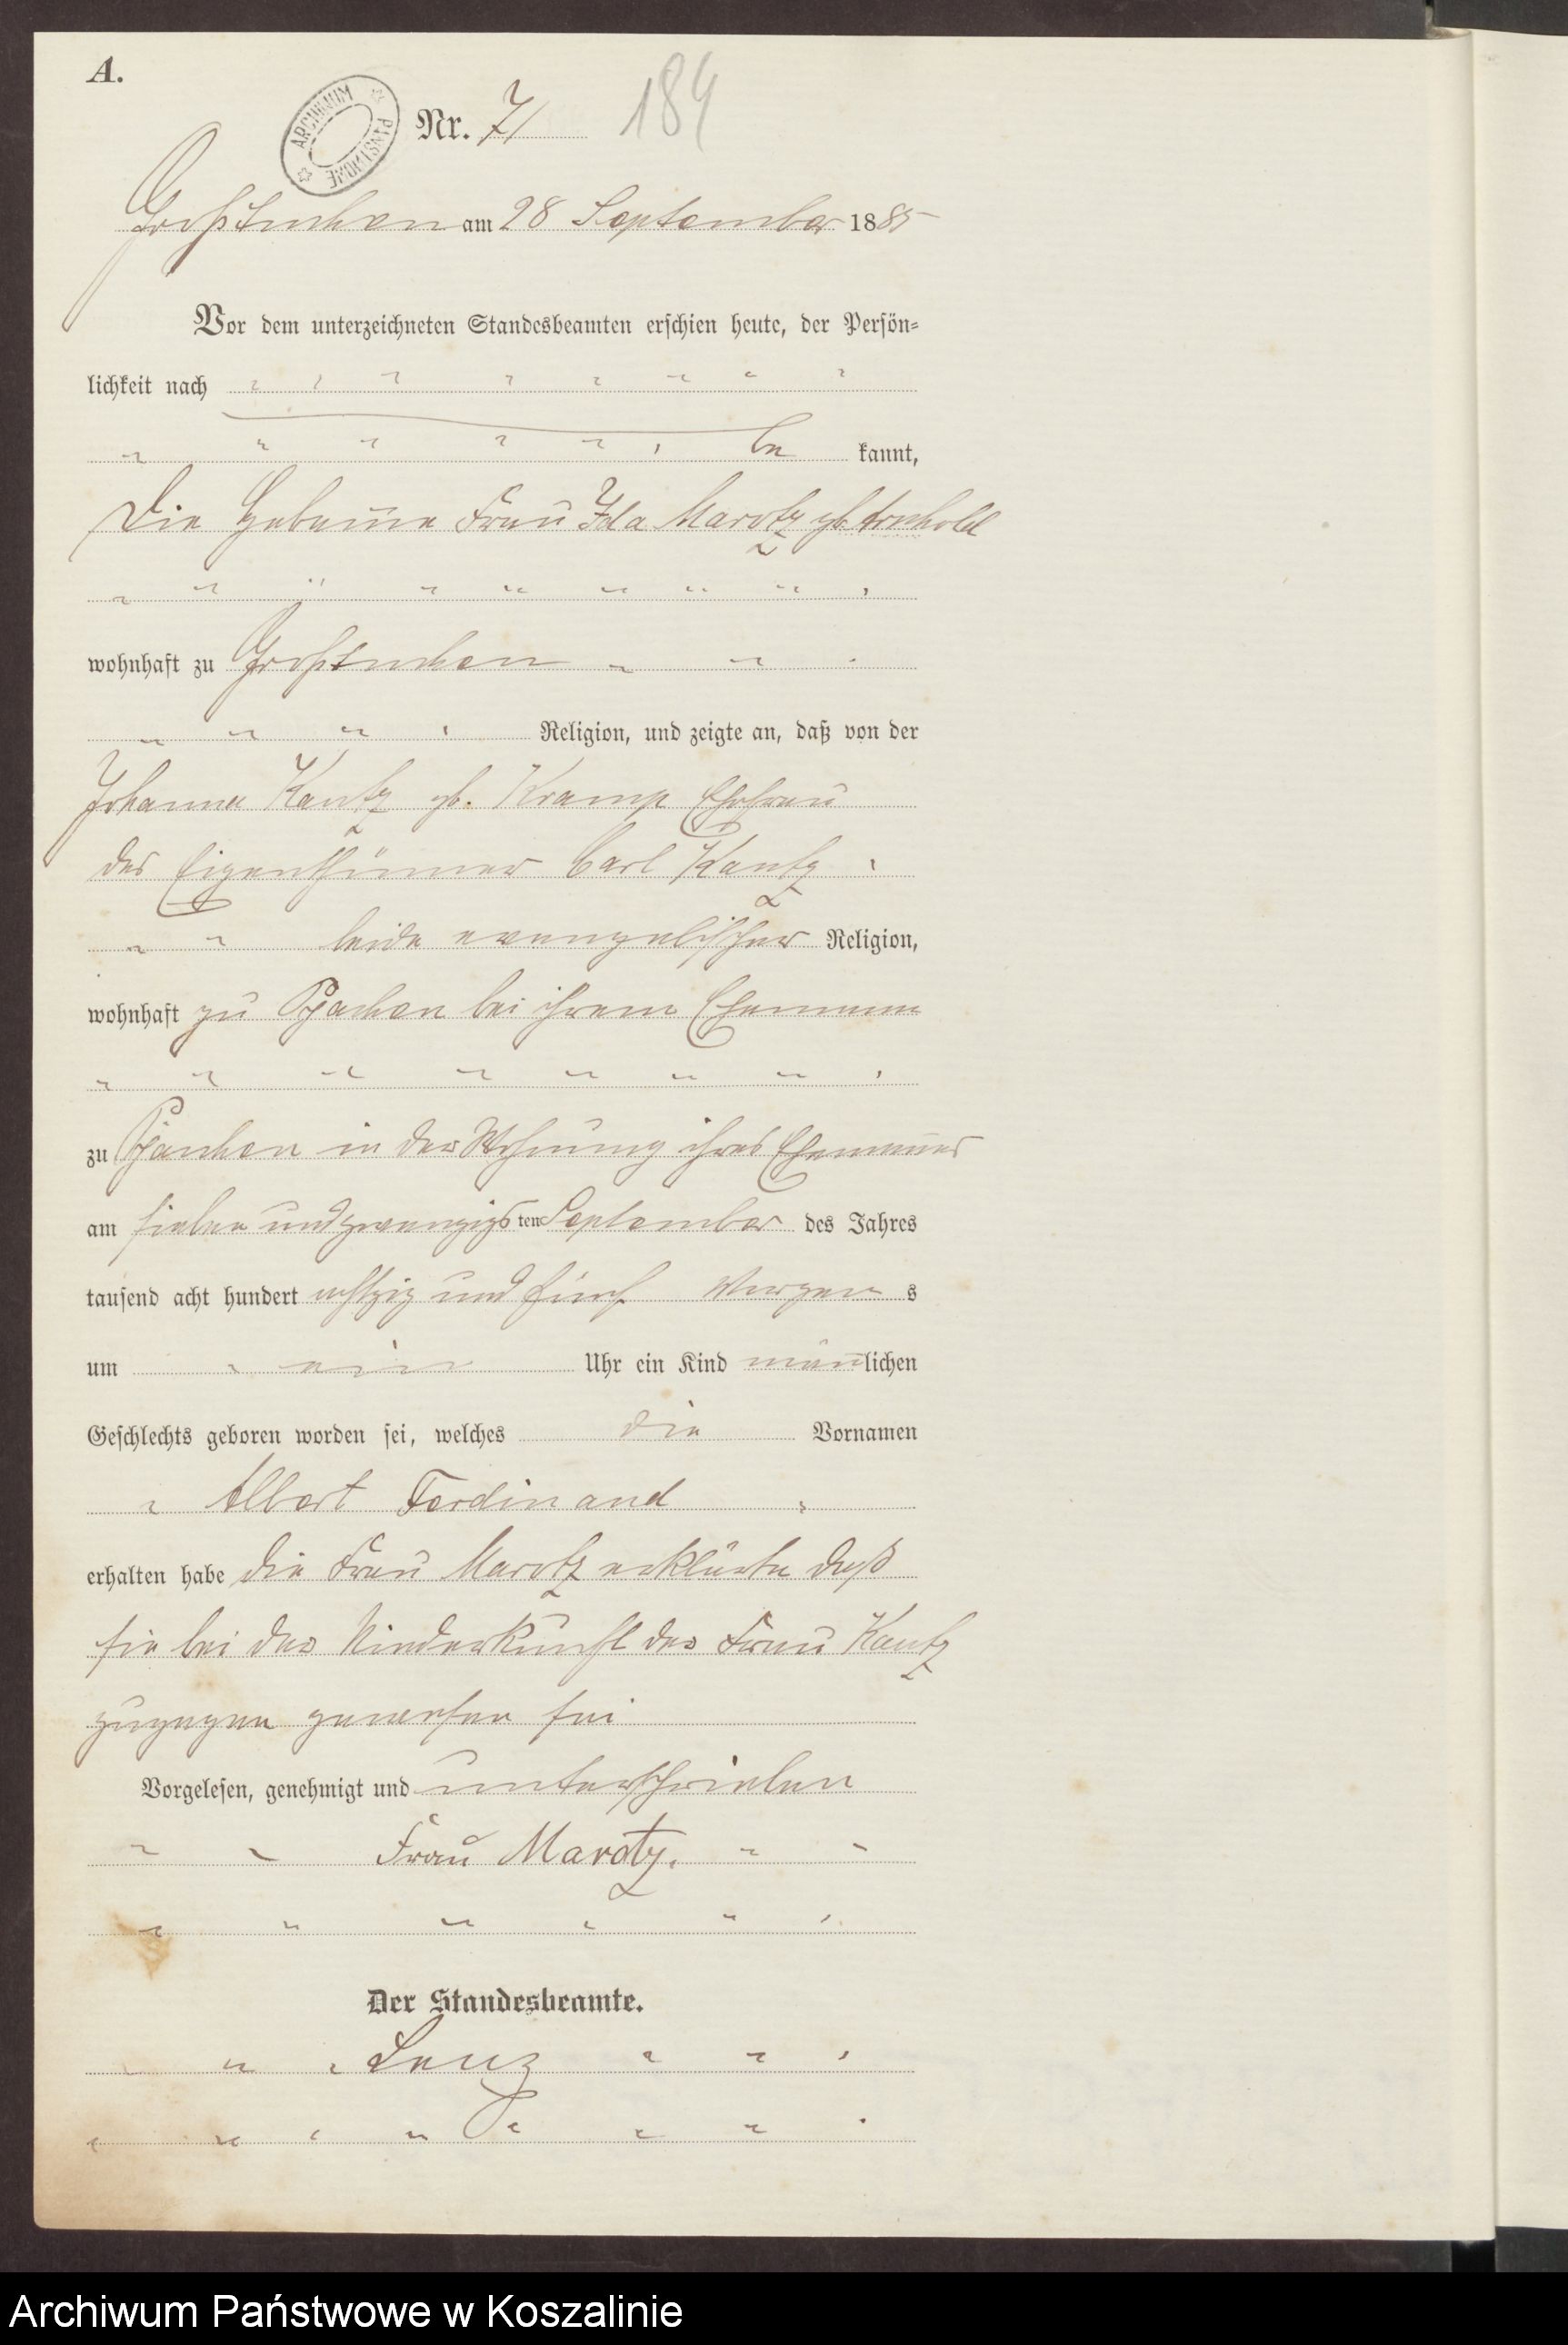 A.
ARCHIWUM PAŃSTWOWE
Nr. 71 184
Großtuchen am 28 September 1885
Vor dem unterzeichneten Standesbeamten erschien heute, der Persön-
lichkeit nach
be kannt,
Die Hebamme Frau Ida Marotz gb.
wohnhaft zu Großtuchen
Religion, und zeigte an, daß von der
Johanna Kautz gb. Kramp Ehefrau
des Eigenthümer Carl Kautz
beide evangelischer Religion,
wohnhaft zu bei ihrem Ehemann
zu in der Wohnung ihres Ehemannes
am sieben und zwanzigsten September des Jahres
tausend acht hundert achtzig und fünf Morgens
um ein Uhr ein Kind männlichen
Geschlechts geboren worden sei, welches die Vornamen
Albert Ferdinand
erhalten habe die Frau Marotz erklärte daß
sie bei der Niederkunft der Frau Kautz
zugegen gewesen sei
Vorgelesen, genehmigt und unterschrieben
Frau Marotz.
Der Standesbeamte.
Lenz
Archiwum Państwowe w Koszalinie